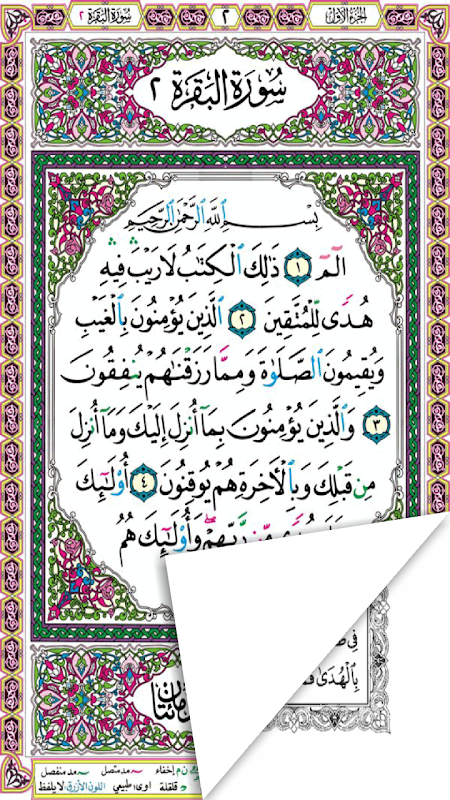 الجزء الأول
٢
سورة البقرة ٢
سُورَةُ البَقَرَة ٢
بِسْمِ ٱللَّهِ ٱلرَّحْمَٰنِ ٱلرَّحِيمِ
الٓمٓ ١ ذَٰلِكَ ٱلْكِتَٰبُ لَا رَيْبَ فِيهِ
هُدًى لِّلْمُتَّقِينَ ٢ ٱلَّذِينَ يُؤْمِنُونَ بِٱلْغَيْبِ
وَيُقِيمُونَ ٱلصَّلَوٰةَ وَمِمَّا رَزَقْنَٰهُمْ يُنفِقُونَ
٣ وَٱلَّذِينَ يُؤْمِنُونَ بِمَآ أُنزِلَ إِلَيْكَ وَمَآ أُنزِلَ
مِن قَبْلِكَ وَبِٱلْأَخِرَةِ هُمْ يُوقِنُونَ ٤ أُو۟لَٰٓئِكَ
مِّن رَّبِّهِمْ وَأُو۟لَٰٓئِكَ هُمُ
بِٱلْهُدَىٰ
ن م إخفاء مد متصل مد منفصل
قلقلة مد طبيعي اللون الأزرق لا يلفظ